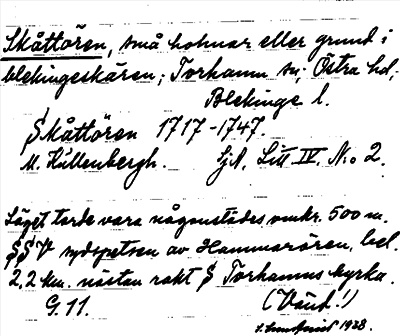 Skåttören, små holmar eller grund i
blekingeskären; Torhamn sn; Östra hd,
Blekinge l.
Skåttören 1717-1747.
M. Hüllenbergh. SjA, Litt IV. N:o 2.
Läget torde vara någonstädes omkr. 500 m.
SSV sydspetsen av Hammarören, bel.
2,2 km. nästan rakt S Torhamns kyrka.
G. 11. (Vänd!)
1928.